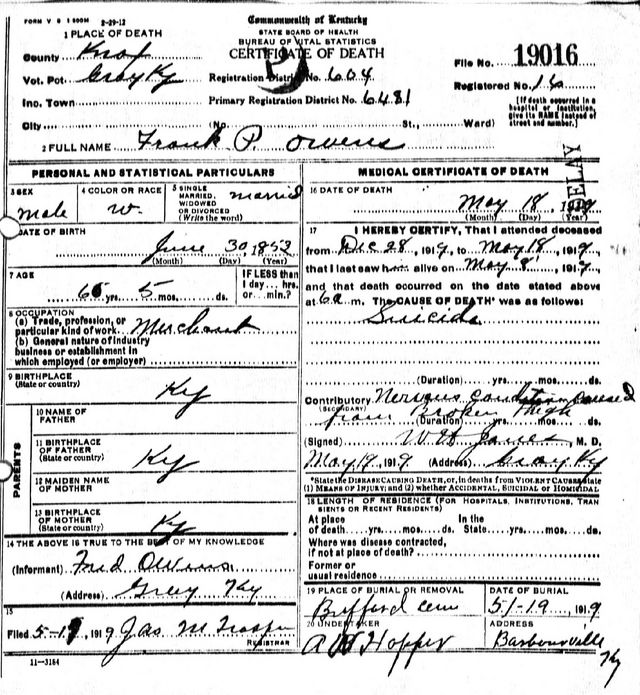 FORM V S 1 500M 2-29-12
Commonwealth of Kentucky
STATE BOARD OF HEALTH
BUREAU OF VITAL STATISTICS
CERTIFICATE OF DEATH
1 PLACE OF DEATH
County Knox
Vot. Pct. Gray Ky
Inc. Town
City (No. St., Ward)
Registration District No. 604
Primary Registration District No. 6481
File No. 19016
Registered No. 16
[If death occurred in a hospital or institution, give its NAME instead of street and number.]
2 FULL NAME Frank P. Owens
DELAY
PERSONAL AND STATISTICAL PARTICULARS
3 SEX male
4 COLOR OR RACE W.
5 SINGLE MARRIED, WIDOWED OR DIVORCED (Write the word) married
DATE OF BIRTH
June 30, 1853
(Month) (Day) (Year)
7 AGE
65 yrs. 5 mos. ds.
IF LESS than 1 day... hrs. or... min.?
8 OCCUPATION
(a) Trade, profession, or particular kind of work Merchant
(b) General nature of industry business or establishment in which employed (or employer)
9 BIRTHPLACE (State or country) Ky
PARENTS
10 NAME OF FATHER
11 BIRTHPLACE OF FATHER (State or country) Ky
12 MAIDEN NAME OF MOTHER
13 BIRTHPLACE OF MOTHER (State or country) Ky
14 THE ABOVE IS TRUE TO THE BEST OF MY KNOWLEDGE
(Informant) Fred Owens
(Address) Gray Ky
15
Filed 5-19, 1919 Jas M
REGISTRAR
11-3184
MEDICAL CERTIFICATE OF DEATH
16 DATE OF DEATH
May 18, 1919
(Month) (Day) (Year)
17 I HEREBY CERTIFY, That I attended deceased
from Dec 28, 1919, to May 18, 1919,
that I last saw h alive on May 8, 1919,
and that death occurred on the date stated above
at 6 a m. The CAUSE OF DEATH* was as follows:
Suicide
(Duration) yrs. mos. ds.
Contributory (SECONDARY) Nervous condition caused
from Broken thigh
(Duration) yrs. mos. ds.
(Signed) Jones, M. D.
May 19, 1919 (Address) Gray Ky
*State the DISEASE CAUSING DEATH, or, in deaths from VIOLENT CAUSES state (1) MEANS OF INJURY; and (2) whether ACCIDENTAL, SUICIDAL OR HOMICIDAL
18 LENGTH OF RESIDENCE (FOR HOSPITALS, INSTITUTIONS, TRANSIENTS OR RECENT RESIDENTS)
At place of death yrs. mos. ds. In the State yrs. mos. ds.
Where was disease contracted, if not at place of death?
Former or usual residence
19 PLACE OF BURIAL OR REMOVAL
cem
DATE OF BURIAL
5/-19, 1919
20 UNDERTAKER
Hopper
ADDRESS
Barbourville
Ky